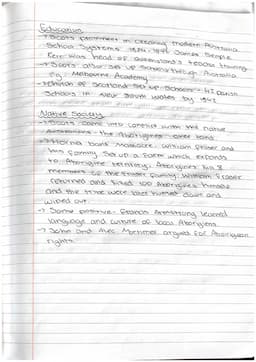 Education
→ Scots prominent in creating modern Australia
School Systems. 1874-1909 James Semple
Kerr was head of Queensland's teacher training
→ Scots also set up schools through Australia
Eg: Melbourne Academy
→ Church of Scotland set up schools - 42 parish
Schools in New South Wales by 1842
Native Society
→ Scots came into conflict with the native
the Aborigines over land
→ Hornet bank Massacre. William Fraser and
his family set up a farm which extends
to Aborigine territory. Aborigines kill 8
members of the Fraser family. William Fraser
returned and killed 100 Aborigines himself
and the tribe were later hunted down and
wiped out.
→ Some positive: Francis Armstrong learned
language and culture of local Aborigines
→ John and Alec Mortimer argued for Aborigines
rights